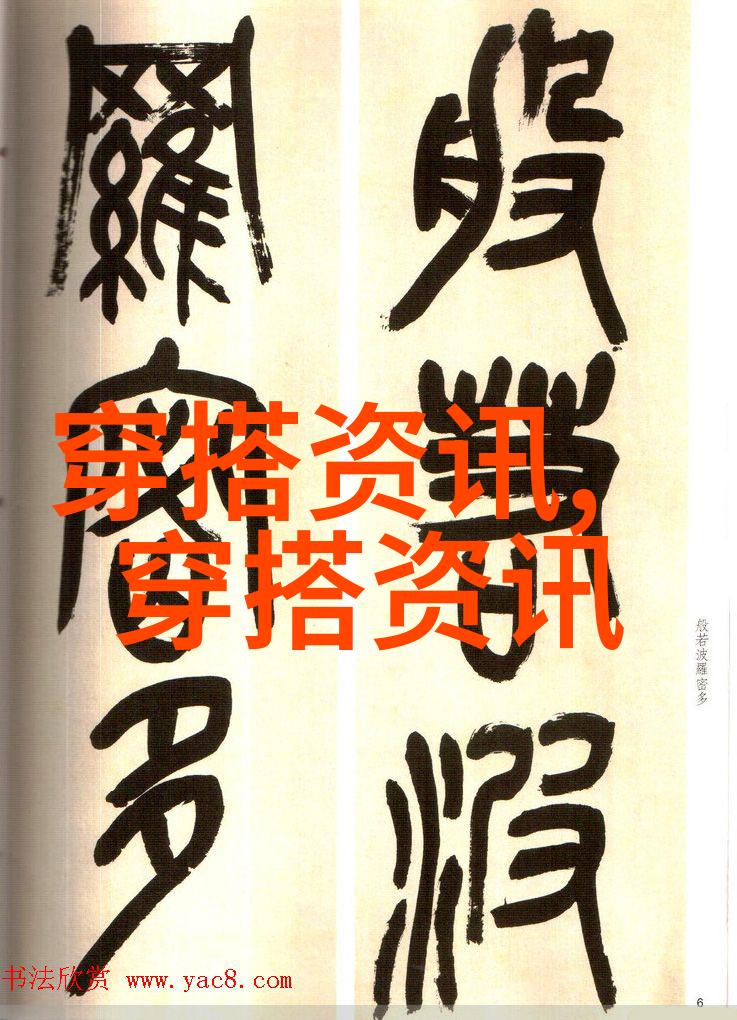 般若波
羅密多
穿搭资讯,
穿搭资讯
般若波羅密多
书法欣赏 www.yac8.com
6